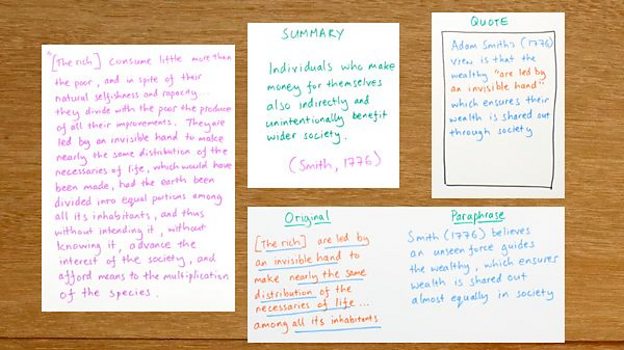 "[The rich] consume little more than
the poor, and in spite of their
natural selfishness and rapacity...
they divide with the poor the produce
of all their improvements. They are
led by an invisible hand to make
nearly the same distribution of the
necessaries of life, which would have
been made, had the earth been
divided into equal portions among
all its inhabitants, and thus
without intending it, without
knowing it, advance the
interest of the society, and
afford means to the multiplication
of the species.
SUMMARY
Individuals who make
money for themselves
also indirectly and
unintentionally benefit
wider society.
(Smith, 1776)
QUOTE
Adam Smith's (1776)
view is that the
wealthy "are led by
an invisible hand"
which ensures their
wealth is shared out
through society
Original
[The rich] are led by
an invisible hand to
make nearly the same
distribution of the
necessaries of life...
among all its inhabitants
Paraphrase
Smith (1776) believes
an unseen force guides
the wealthy, which ensures
wealth is shared out
almost equally in society